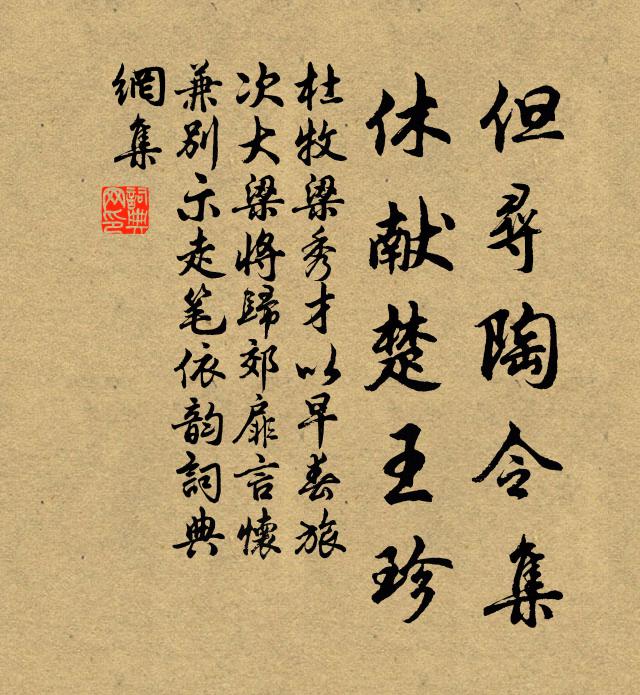 但寻陶令集
休献楚王珍
杜牧梁秀才以早春旅
次大梁将歸郊扉言懷
兼别示走笔依韵詞典
網集
詞典網印